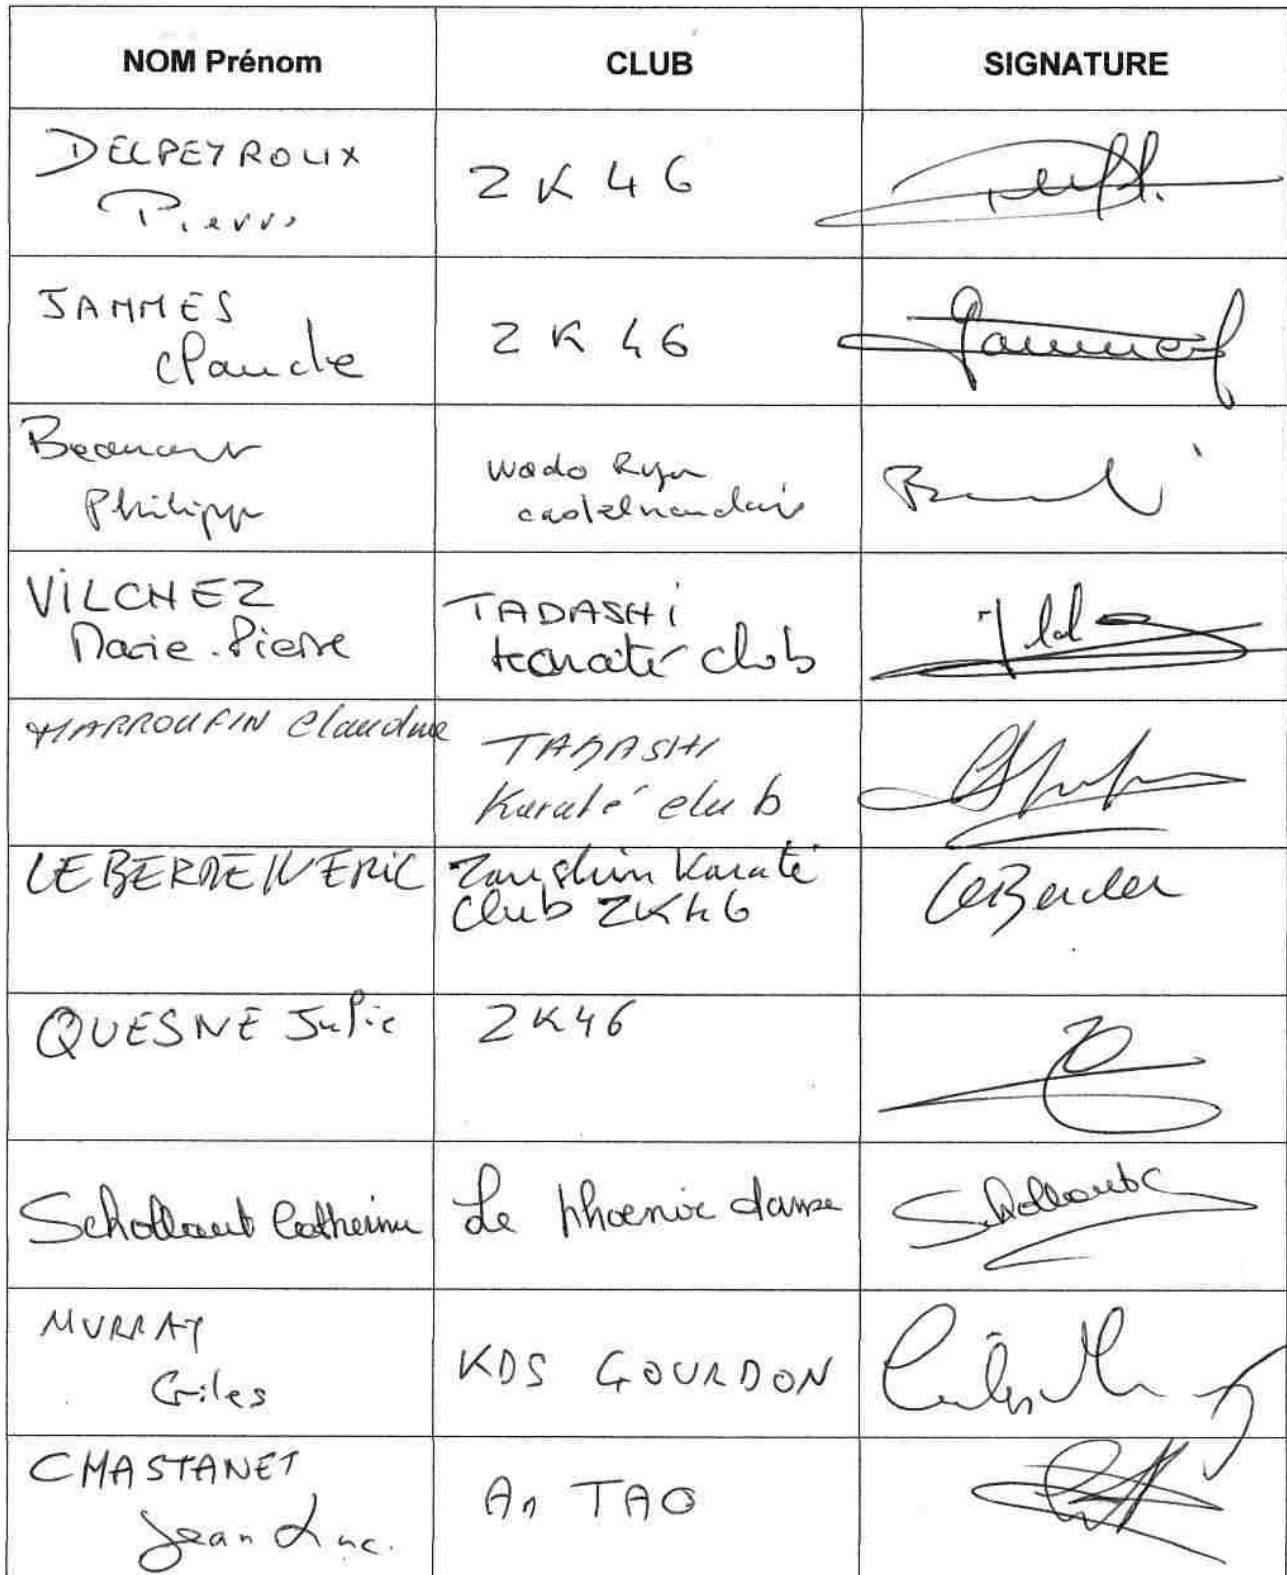 NOM Prénom CLUB SIGNATURE
DELPEYROUX
Pierre
ZK46
JAMMES
Claude
ZK46
Philippe
Wado Ryu
castelnaudais
VILCHEZ
Marie-Pierre
TADASHI
karaté club
MARROUFIN Claudine
TADASHI
Karaté club
LE BERDER ERIC
Zanshin Karaté
Club ZK46
LeBerder
QUESNE Julie
ZK46
Schollaut Catherine
Le phoenix danse
Schollaut C
MURRAY
Giles
KDS GOURDON
CHASTANET
Jean Luc.
An TAO